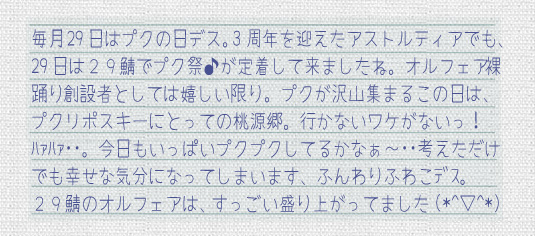 毎月29日はプクの日デス。3周年を迎えたアストルティアでも、
29日は２９鯖でプク祭♪が定着して来ましたね。オルフェア裸
踊り創設者としては嬉しい限り。プクが沢山集まるこの日は、
プクリポスキーにとっての桃源郷。行かないワケがないっ！
ﾊｧﾊｧ･･。今日もいっぱいプクプクしてるかなぁ～･･考えただけ
でも幸せな気分になってしまいます、ふんわりふわこデス。
２９鯖のオルフェアは、すっごい盛り上がってました(*^▽^*)